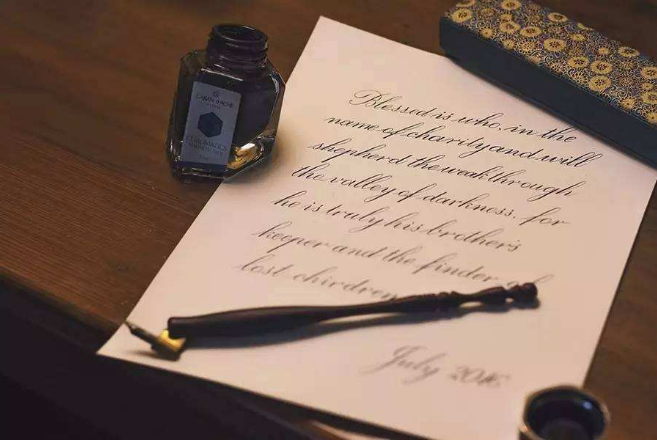 Blessed is who, in the
name of charity and will
shepherd the weak through
the valley of darkness, for
he is truly his brother's
keeper and the finder of
lost chirdren
July 2016